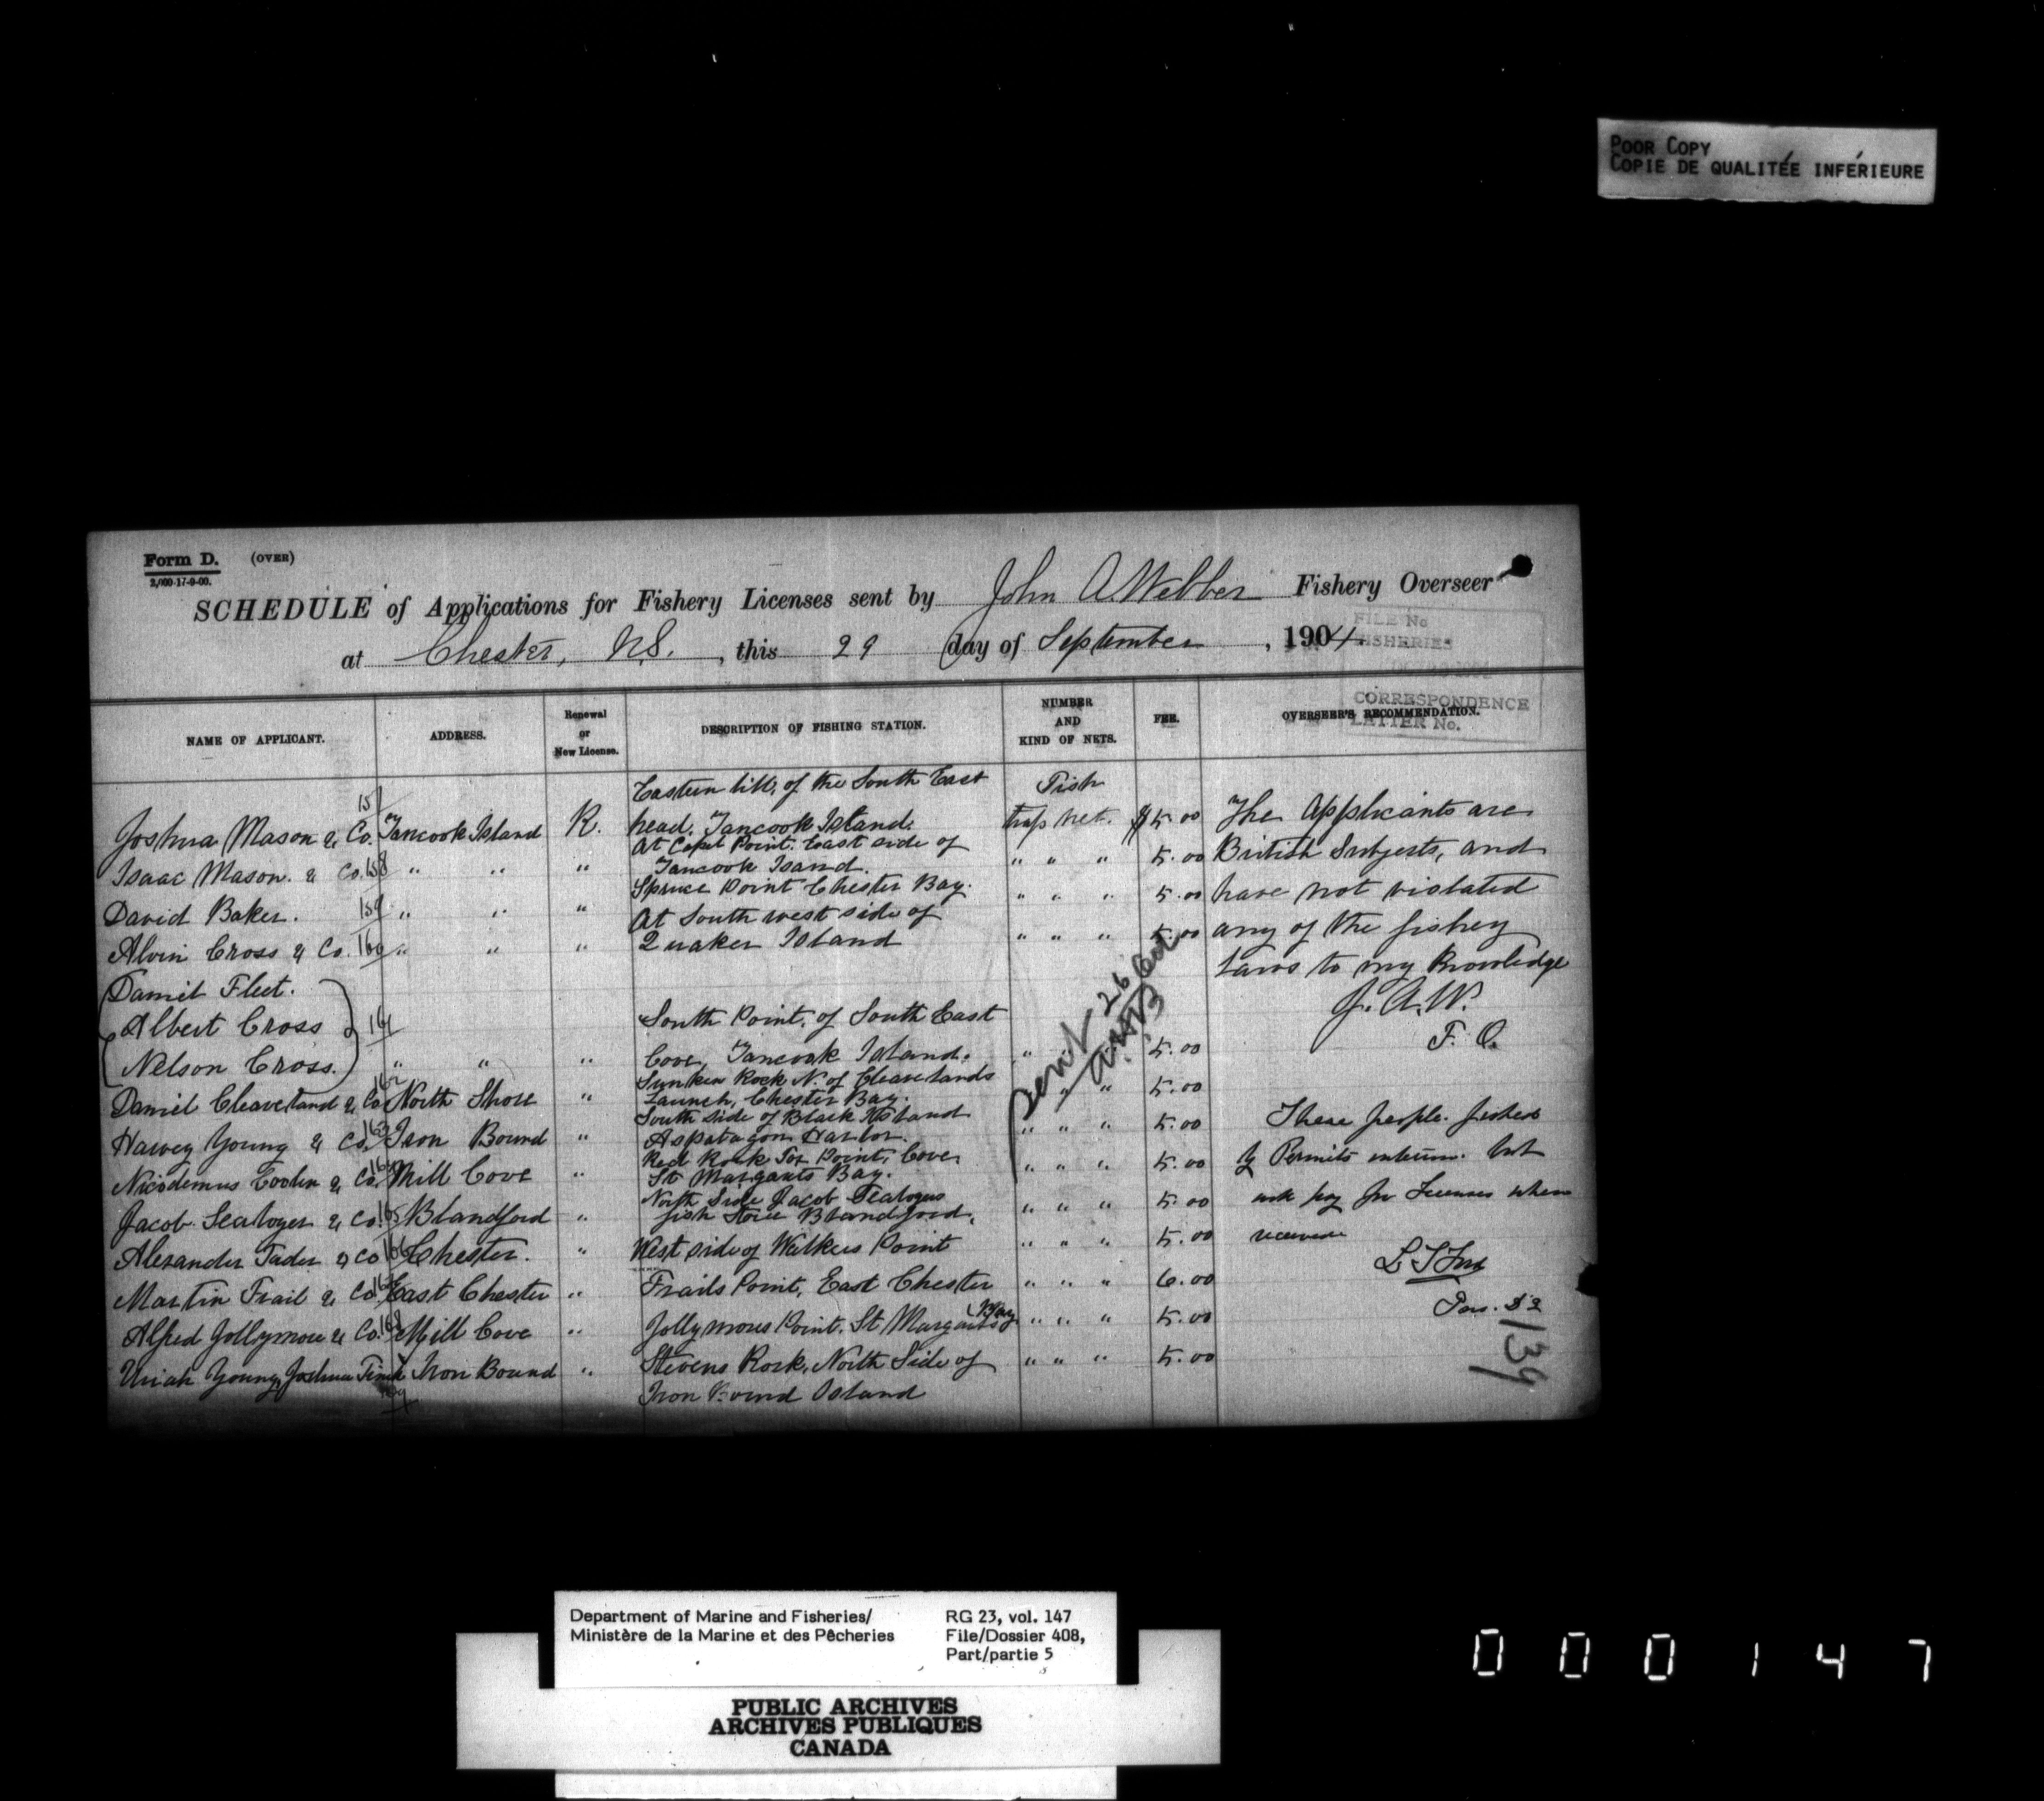 POOR COPY
COPIE DE QUALITÉE INFÉRIEURE
Form D. (OVER)
2,000-17-9-00.
SCHEDULE of Applications for Fishery Licenses sent by John A Webber Fishery Overseer
at Chester, N.S. , this 29 day of September , 1904.
FILE No
FISHERIES
CORRESPONDENCE
LETTER No.
NAME OF APPLICANT. ADDRESS. Renewal or New License. DESCRIPTION OF FISHING STATION. NUMBER AND KIND OF NETS. FEE. OVERSEER'S RECOMMENDATION.
Eastern side of the South East Fish
Joshua Mason & Co. 157 Tancook Island R. head. Tancook Island. trap net. $5.00 The Applicants are
At Point. East side of
Isaac Mason. & Co. 158 " " " Tancook Island. " " " 5.00 British Subjects, and
David Baker. 159 " " " Spruce Point Chester Bay. " " " 5.00 have not violated
At South west side of
Alvin Cross & Co. 160 " " " Quaker Island " " " 5.00 any of the fishery
laws to my Knowledge
Daniel Fleet.
Albert Cross 161 South Point, of South East
J. A. W.
F. O.
Nelson Cross. " " " Cove, Tancook Island. " " " 5.00
Sent 26 Oct
Sunken Rock N. of Cleavelands
Daniel Cleaveland & Co 162 North Shore " Launch, Chester Bay. " " " 5.00
South side of Black Island
Harvey Young & Co. 163 Iron Bound " Aspatagon Harbor. " " " 5.00 These people fished
Red Rock Fox Point, Cove
Nicodemus Coolen & Co. 164 Mill Cove " St Margarets Bay. " " " 5.00 Permits but
North Side Jacob Seaboyers
Jacob Seaboyer & Co. 165 Blandford " fish Store Blandford. " " " 5.00 pay for Licenses when
Alexander Tader & Co 166 Chester. " West side of Walkers Point " " " 5.00 received
Martin Frail & Co 167 East Chester " Frails Point, East Chester " " " 6.00
Alfred Jollymore & Co. 168 Mill Cove " Jollymores Point. St Margarets Bay " " " 5.00
Uriah Young, Joshua Finck Iron Bound " Stevens Rock, North Side of " " " 5.00
169 Iron Bound Island
139
Department of Marine and Fisheries/
Ministère de la Marine et des Pêcheries
RG 23, vol. 147
File/Dossier 408,
Part/partie 5
PUBLIC ARCHIVES
ARCHIVES PUBLIQUES
CANADA
000147